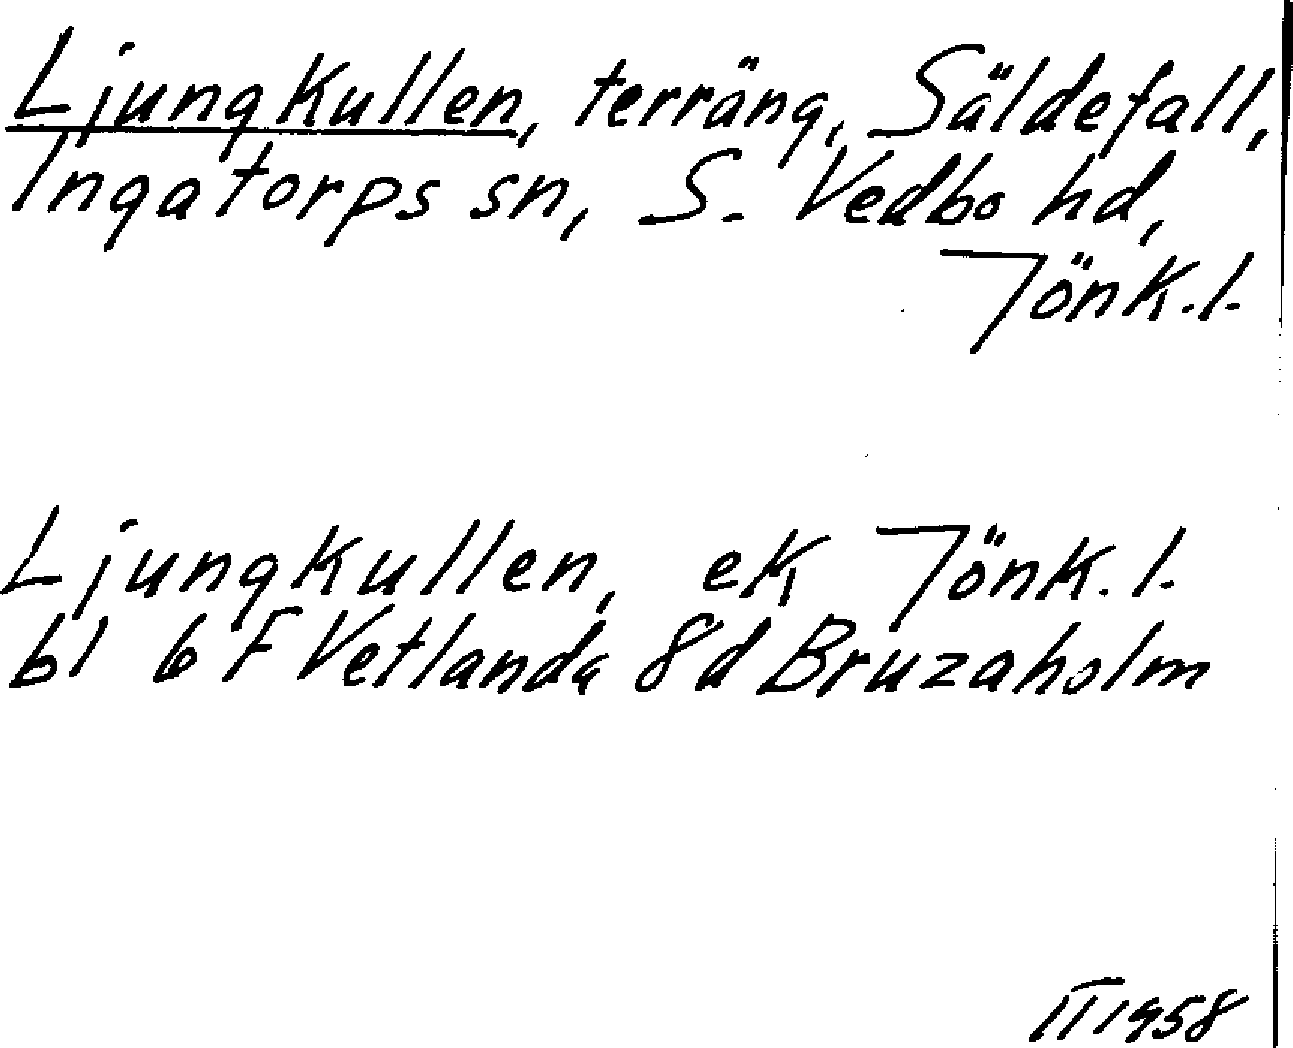 Ljungkullen, terräng, Säldefall,
Ingatorps sn, S. Vedbo hd,
Jönk. l.
Ljungkullen, ek Jönk. l.
bl 6 F Vetlanda 8d Bruzaholm
II 1958